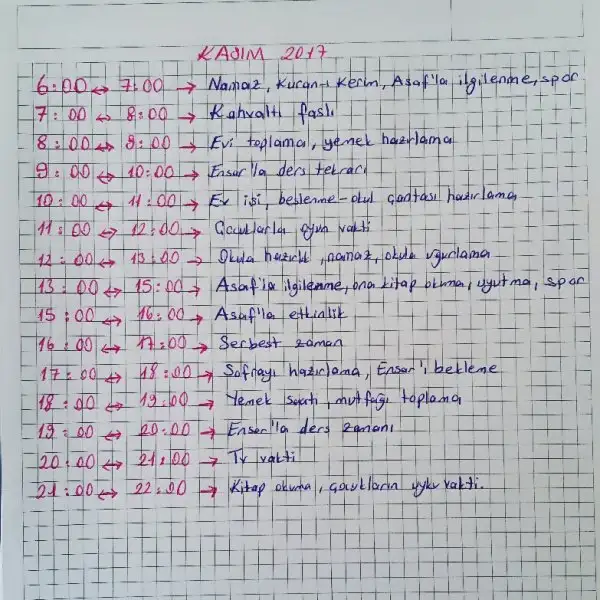 KASIM 2017
6:00 ↔ 7:00 → Namaz, Kuran-ı Kerim, Asaf'la ilgilenme, spor
7:00 ↔ 8:00 → Kahvaltı faslı
8:00 ↔ 9:00 → Evi toplama, yemek hazırlama
9:00 ↔ 10:00 → Ensar'la ders tekrarı
10:00 ↔ 11:00 → Ev işi, beslenme-okul çantası hazırlama
11:00 ↔ 12:00 → Çocuklarla oyun vakti
12:00 ↔ 13:00 → Okula hazırlık, namaz, okula uğurlama
13:00 ↔ 15:00 → Asaf'la ilgilenme, ona kitap okuma, uyutma, spor
15:00 ↔ 16:00 → Asaf'la etkinlik
16:00 ↔ 17:00 → Serbest zaman
17:00 ↔ 18:00 → Sofrayı hazırlama, Ensar'ı bekleme
18:00 ↔ 19:00 → Yemek saati, mutfağı toplama
19:00 ↔ 20:00 → Ensar'la ders zamanı
20:00 ↔ 21:00 → Tv vakti
21:00 ↔ 22:00 → Kitap okuma, çocukların uyku vakti.